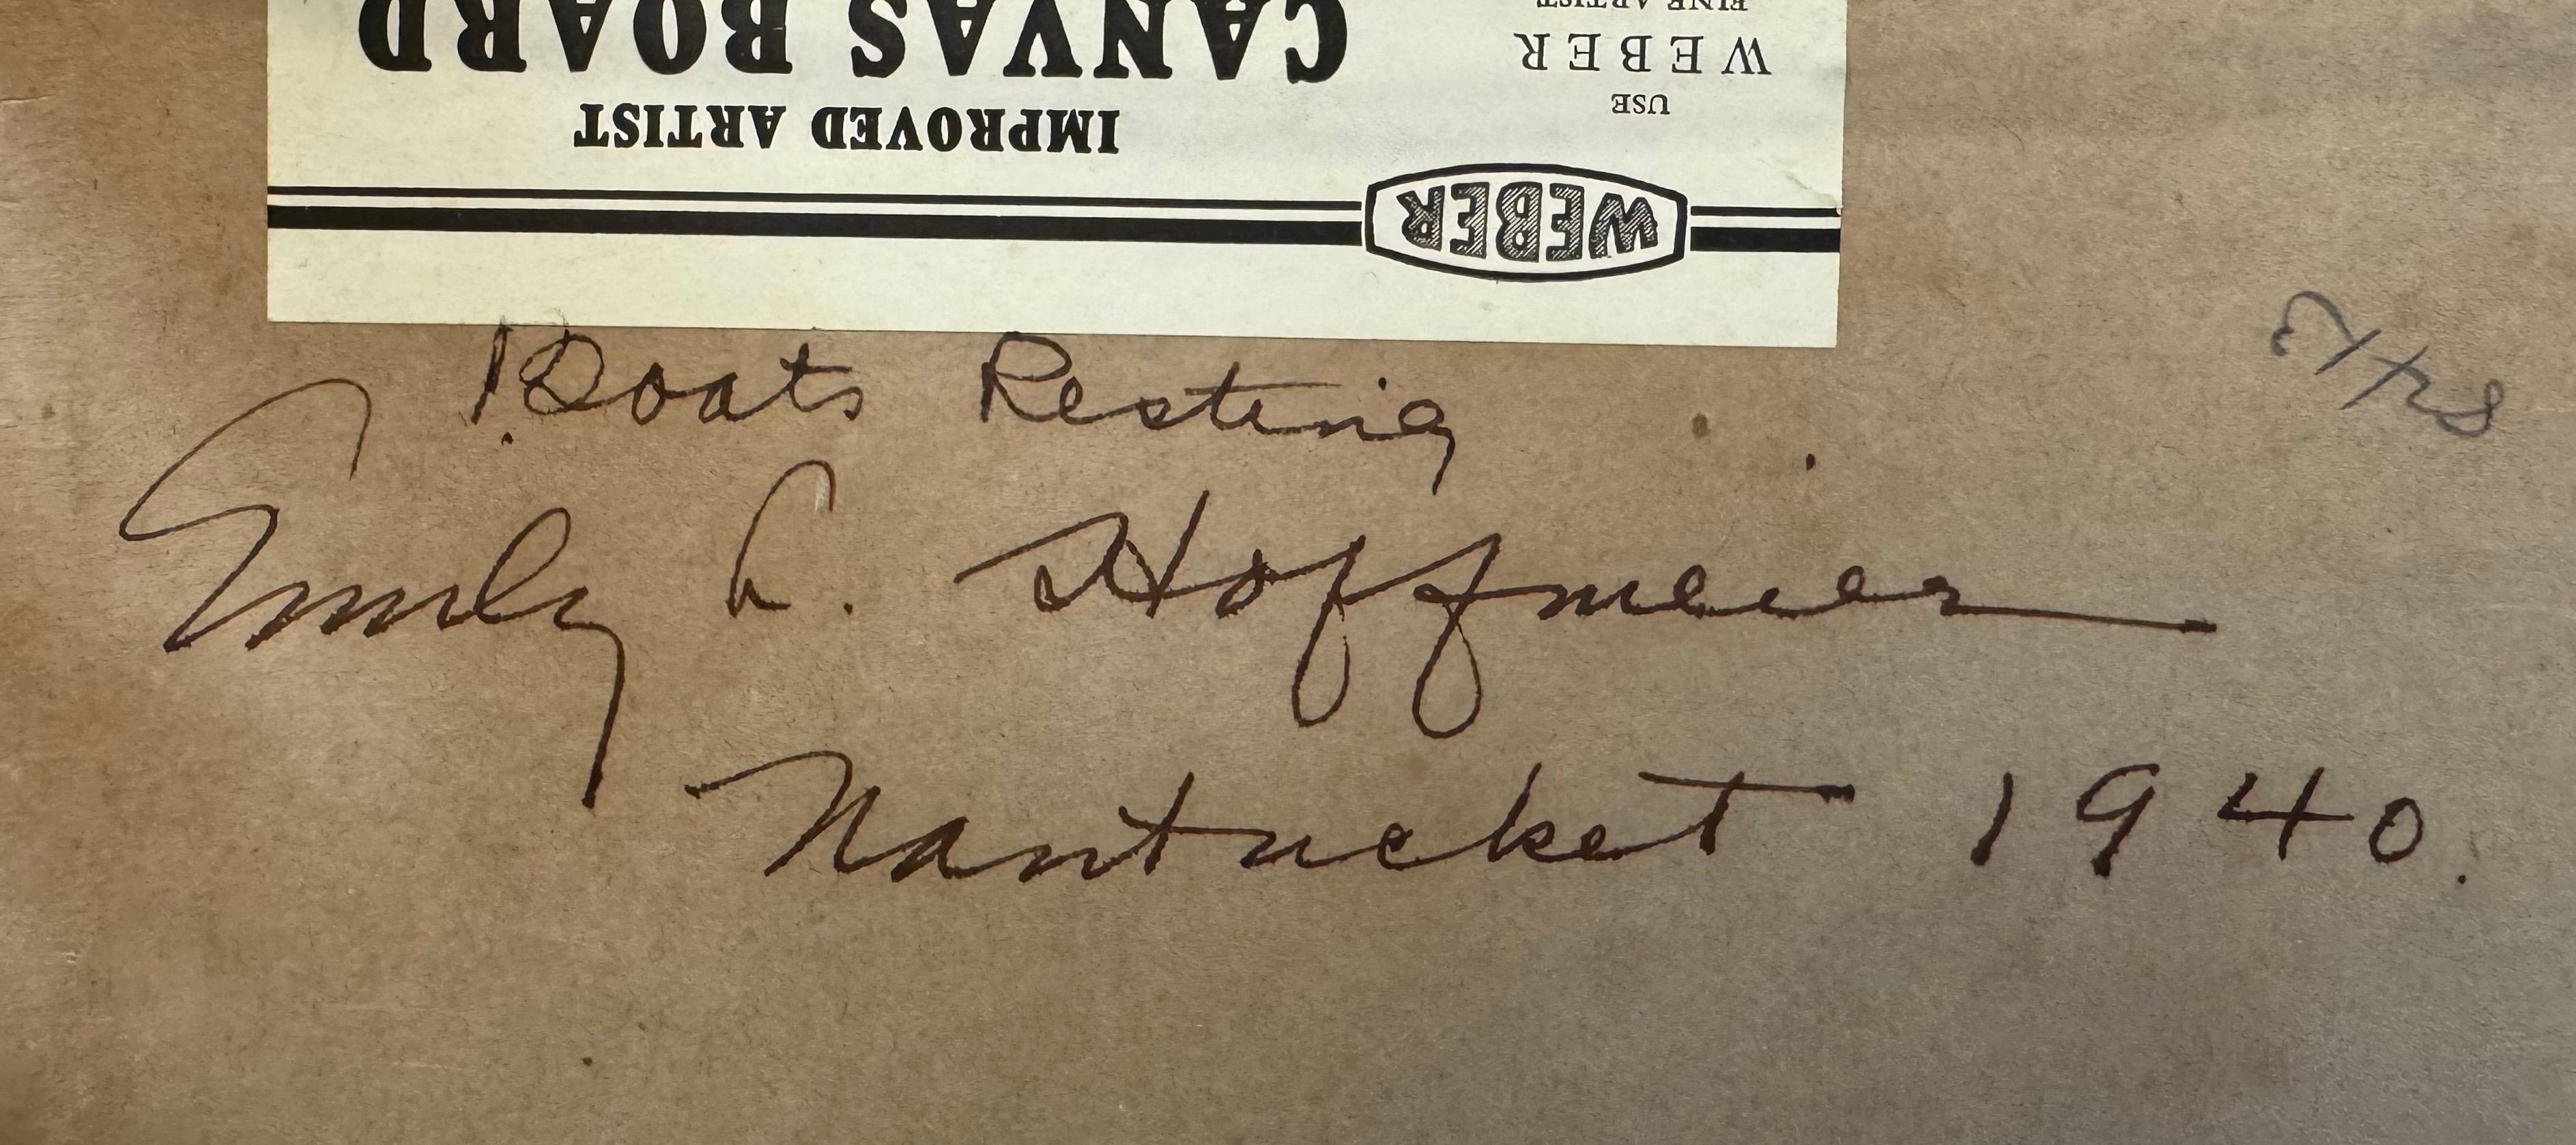 CANVAS BOARD
IMPROVED ARTIST
FINE ARTIST
WEBER
USE
WEBER
Boats Resting
Emily C. Hoffmeier
Nantucket 1940.